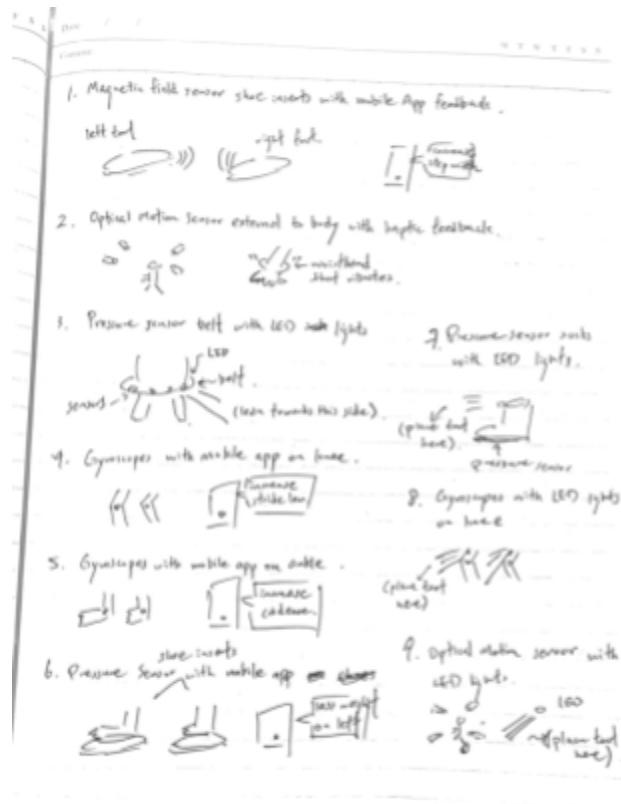 Date / /
M T W T F S S
1. Magnetic field sensor shoe inserts with mobile App feedback.
left foot
right foot
increase
step width
2. Optical Motion Sensor external to body with haptic feedback.
wristband
that vibrates.
3. Pressure sensor belt with LED lights
LED
belt.
sensors
(lean towards this side).
4. Gyroscopes with mobile app on knee.
increase
stride len
5. Gyroscopes with mobile app on ankle.
increase
cadence
shoe inserts
6. Pressure Sensor with mobile app
less weight
on left
7. Pressure sensor socks
with LED lights.
(place foot
here).
pressure sensor
8. Gyroscopes with LED lights
on knee
(place foot
here)
9. Optical motion sensor with
LED lights.
LED
(place foot
here)